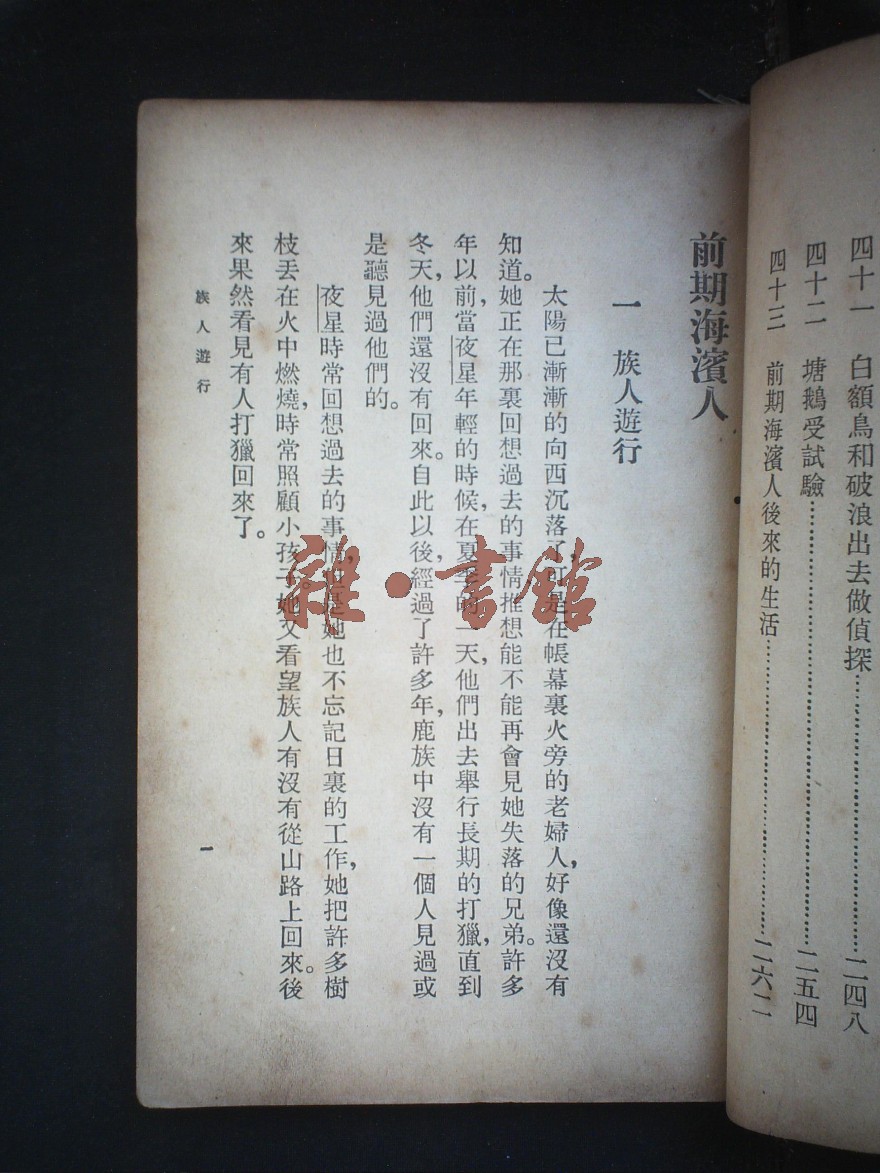 四十一 白額鳥和破浪出去做偵探……二四八
四十二 塘鵝受試驗……二五四
四十三 前期海濱人後來的生活……二六二
前期海濱人
一 族人遊行
太陽已漸漸的向西沉落了，可是在帳幕裏火旁的老婦人，好像還沒有
知道。她正在那裏回想過去的事情推想能不能再會見她失落的兄弟。許多
年以前，當夜星年輕的時候，在夏季的一天，他們出去舉行長期的打獵，直到
冬天，他們還沒有回來。自此以後，經過了許多年，鹿族中沒有一個人見過或
是聽見過他們的。
夜星時常回想過去的事情，但是她也不忘記日裏的工作，她把許多樹
枝丟在火中燃燒，時常照顧小孩子。她又看望族人有沒有從山路上回來。後
來果然看見有人打獵回來了。
族人遊行
一
雜·書館